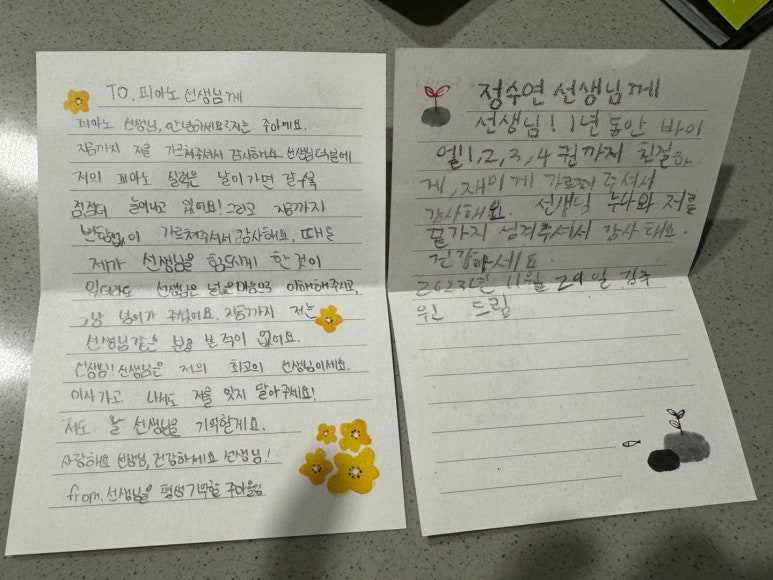 TO. 피아노 선생님께
피아노 선생님, 안녕하세요? 저는 주아예요.
지금까지 저를 가르쳐주셔서 감사해요. 선생님 덕분에
저의 피아노 실력은 날이 가면 갈수록
점점 더 늘어나고 있어요! 그리고 지금까지
변함없이 가르쳐주셔서 감사해요. 때로
제가 선생님을 힘들게 한 것이
있더라도 선생님은 넓은 마음으로 이해해주시고,
그냥 넘어가 주셨어요. 지금까지 저는
선생님같은 분을 본 적이 없어요.
선생님! 선생님은 저의 최고의 선생님이세요.
이사가고 나서도 저를 잊지 말아주세요!
저도 늘 선생님을 기억할게요.
사랑해요 선생님, 건강하세요 선생님!
from. 선생님을 평생 기억할 주아올림
정수연 선생님께
선생님! 1년 동안 바이
엘 1, 2, 3, 4 권까지 친절하
게, 재미게 가르쳐 주셔서
감사해요. 선생님 누나와 저를
끝가지 섬겨주셔서 감사해요.
건강하세요
2023년 11월 29일 김주
원 드림